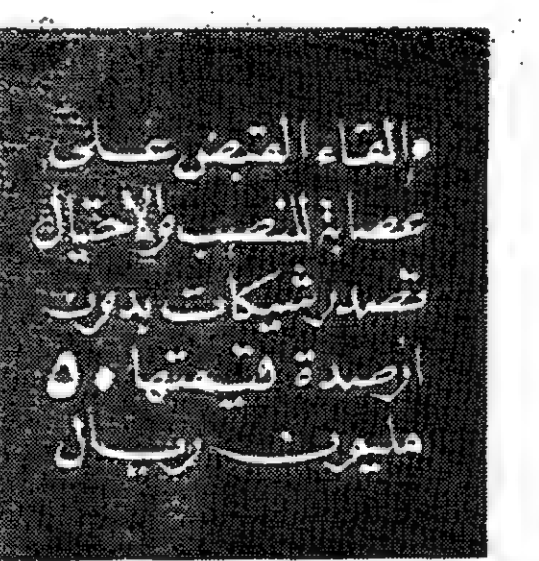 •إلقاء القبض على
عصابة للنصب والاحتيال
تصدر شيكات بدون
أرصدة قيمتها ٥٠
مليون ريال